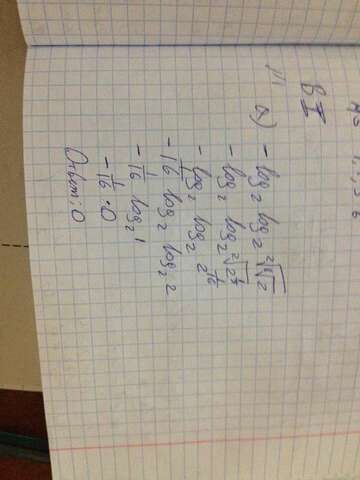 В I
№1
а) - log₂ log₂ ²√⁸√2
- log₂ log₂ ²√2^(1/8)
- log₂ log₂ 2^(1/16)
- 1/16 log₂ log₂ 2
- 1/16 log₂ 1
- 1/16 · 0
Ответ: 0